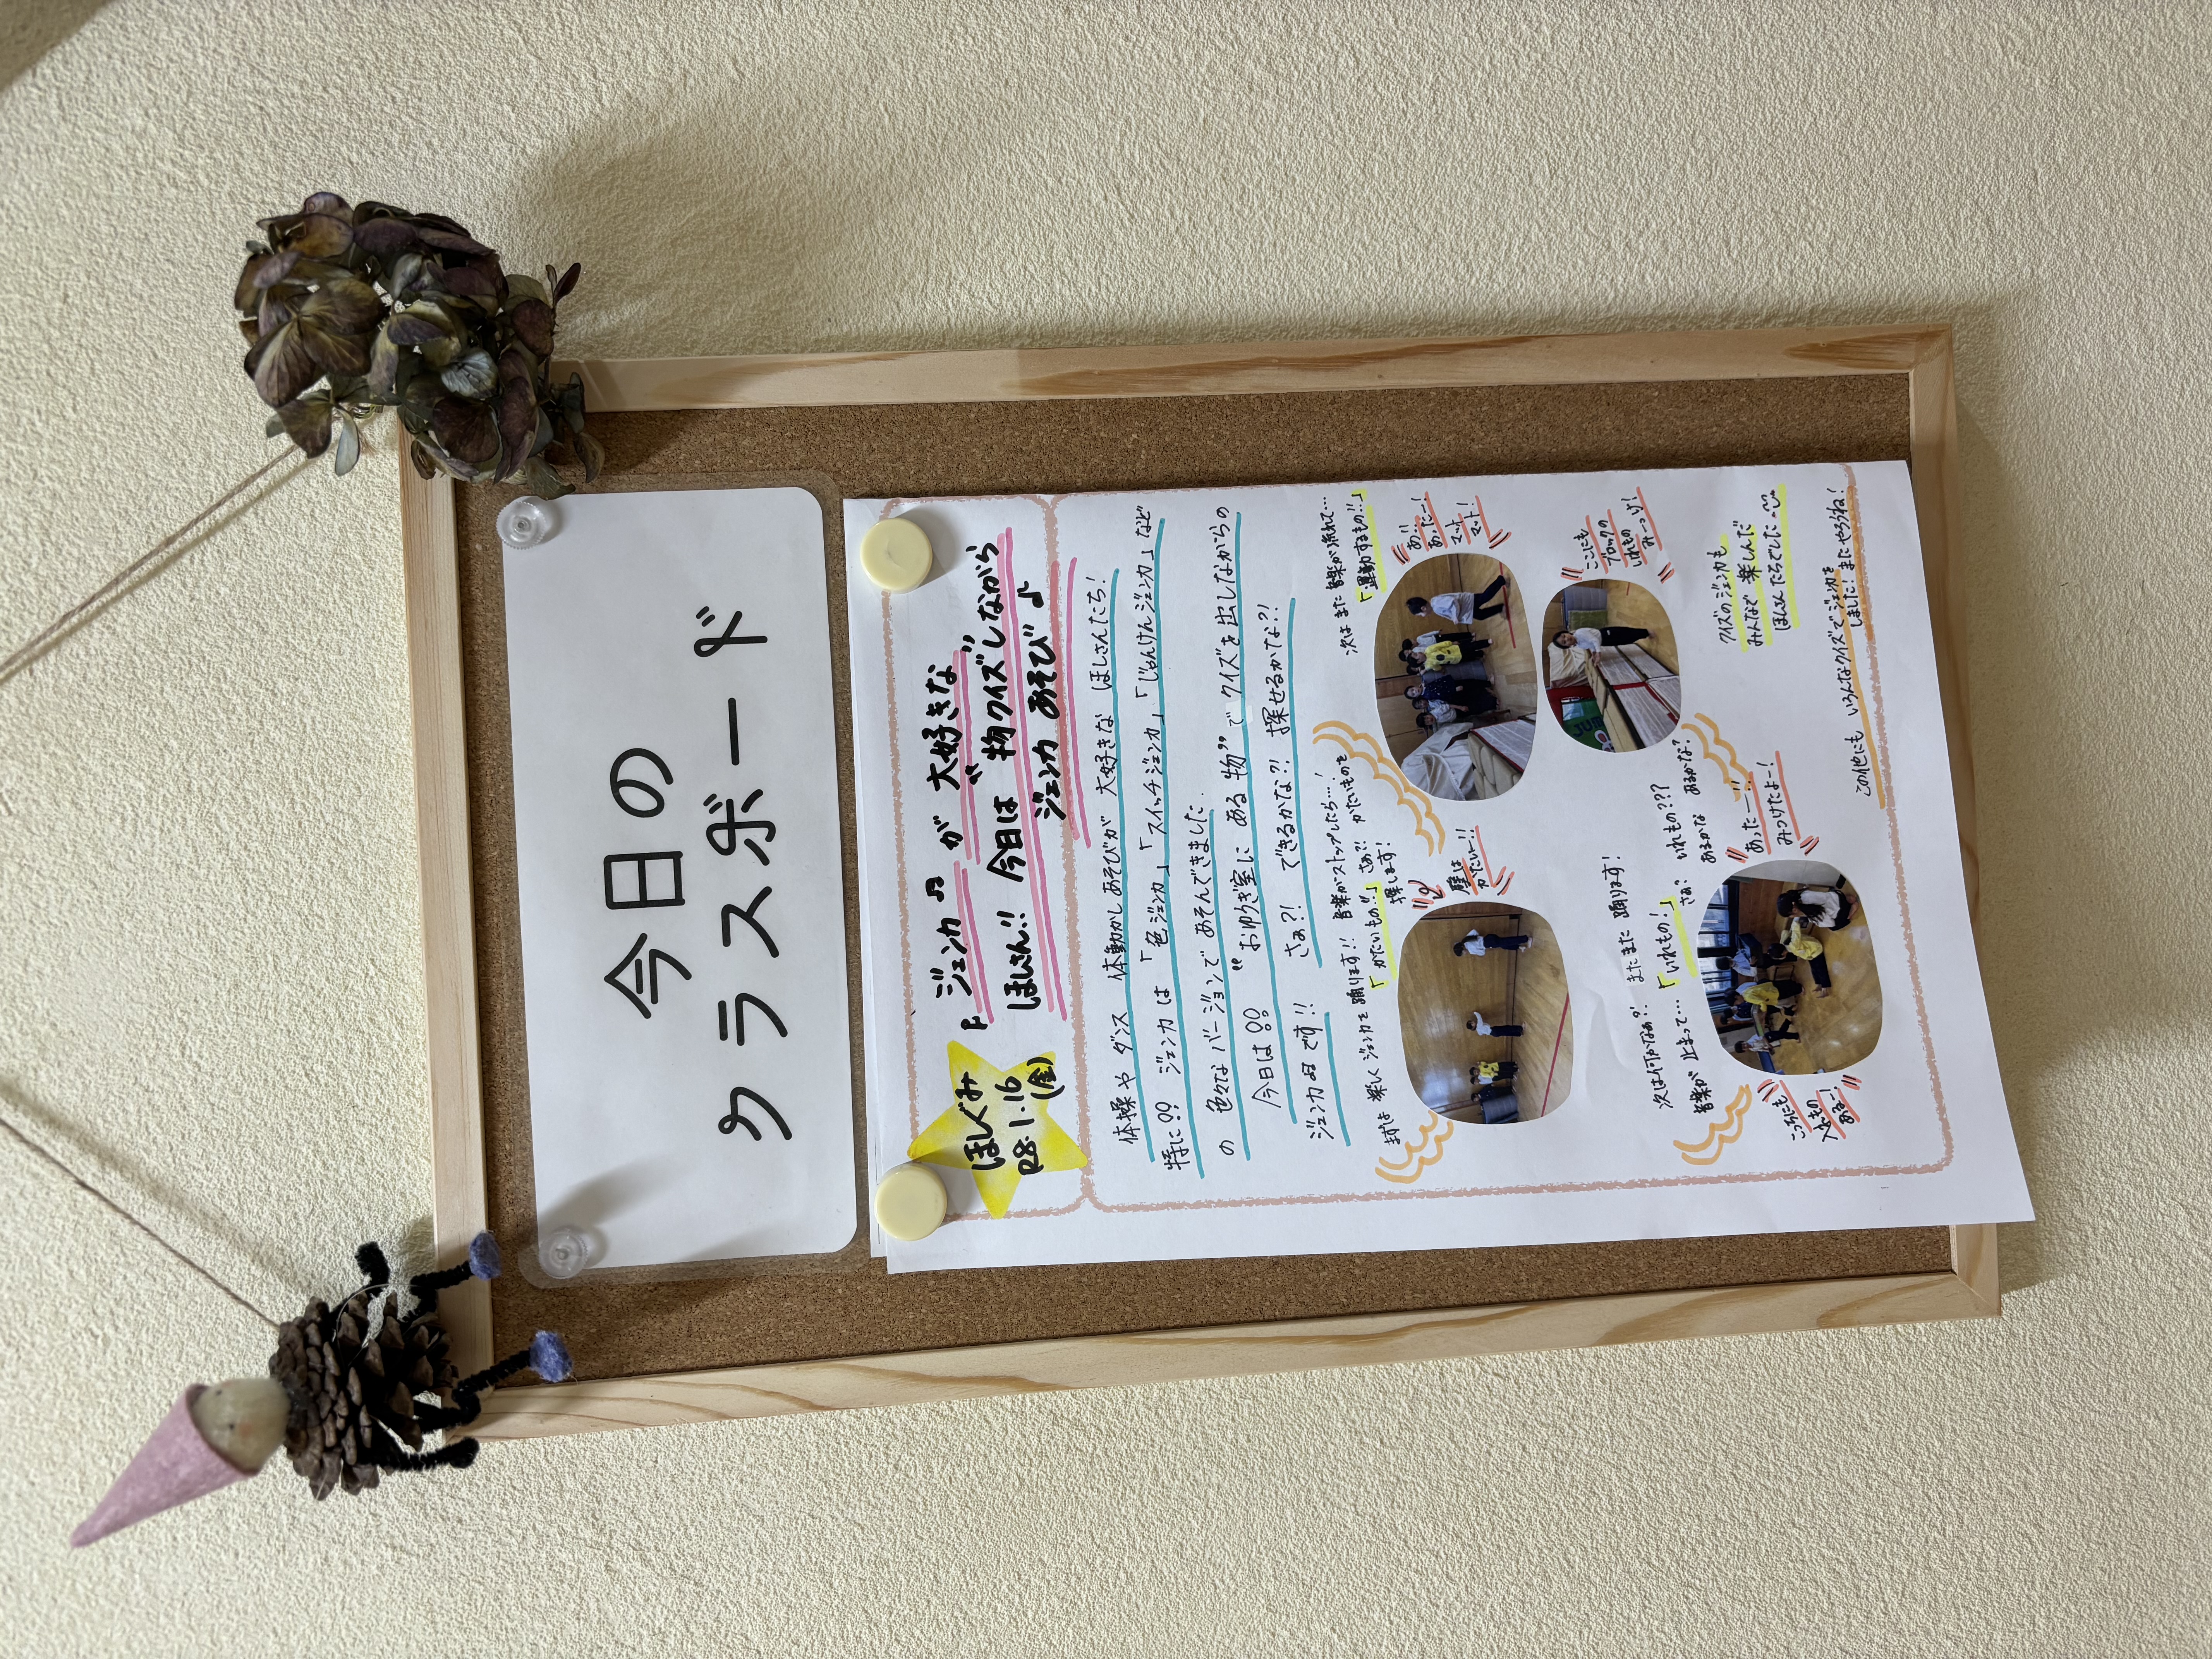 今日の
クラスボード
ほしぐみ
R8.1.16
(金)
ジェンカ♫が大好きな
ほしさん!! 今日は“物クイズ”しながら
ジェンカあそび♪
体操やダンス 体動かしあそびが 大好きな ほしさんたち!
特に!! ジェンカは「色ジェンカ」「スイッチジェンカ」「じゃんけんジェンカ」など
の 色々なバージョンで あそんできました。
今日は!! “おゆうぎ室に ある 物”で クイズを出しながらの
ジェンカ♫です!! さぁ?! できるかな?! 探せるかな?!
まずは 楽しく ジェンカを踊ります!! 音楽がストップしたら…!
「かたいもの!!」さぁ?! かたいものを
探します!
壁は
かたいー!!
次は また 音楽が流れて…
「運動するもの!!」
あ!!
あったー!
マット
マット!
ここにも
ブロックの
いれもの
みーっけ!
次は何かなぁ?! またまた 踊ります!
音楽が 止まって…「いれもの!」
さぁ? いれもの???
あるかな あるかな?
こっちにも
入れもの
あるよー!
あったー!!
みつけたよー!
クイズのジェンカも
みんなで 楽しんだ
ほしさんたちでした
この他にも いろんなクイズで ジェンカを
しました! またやろうね!